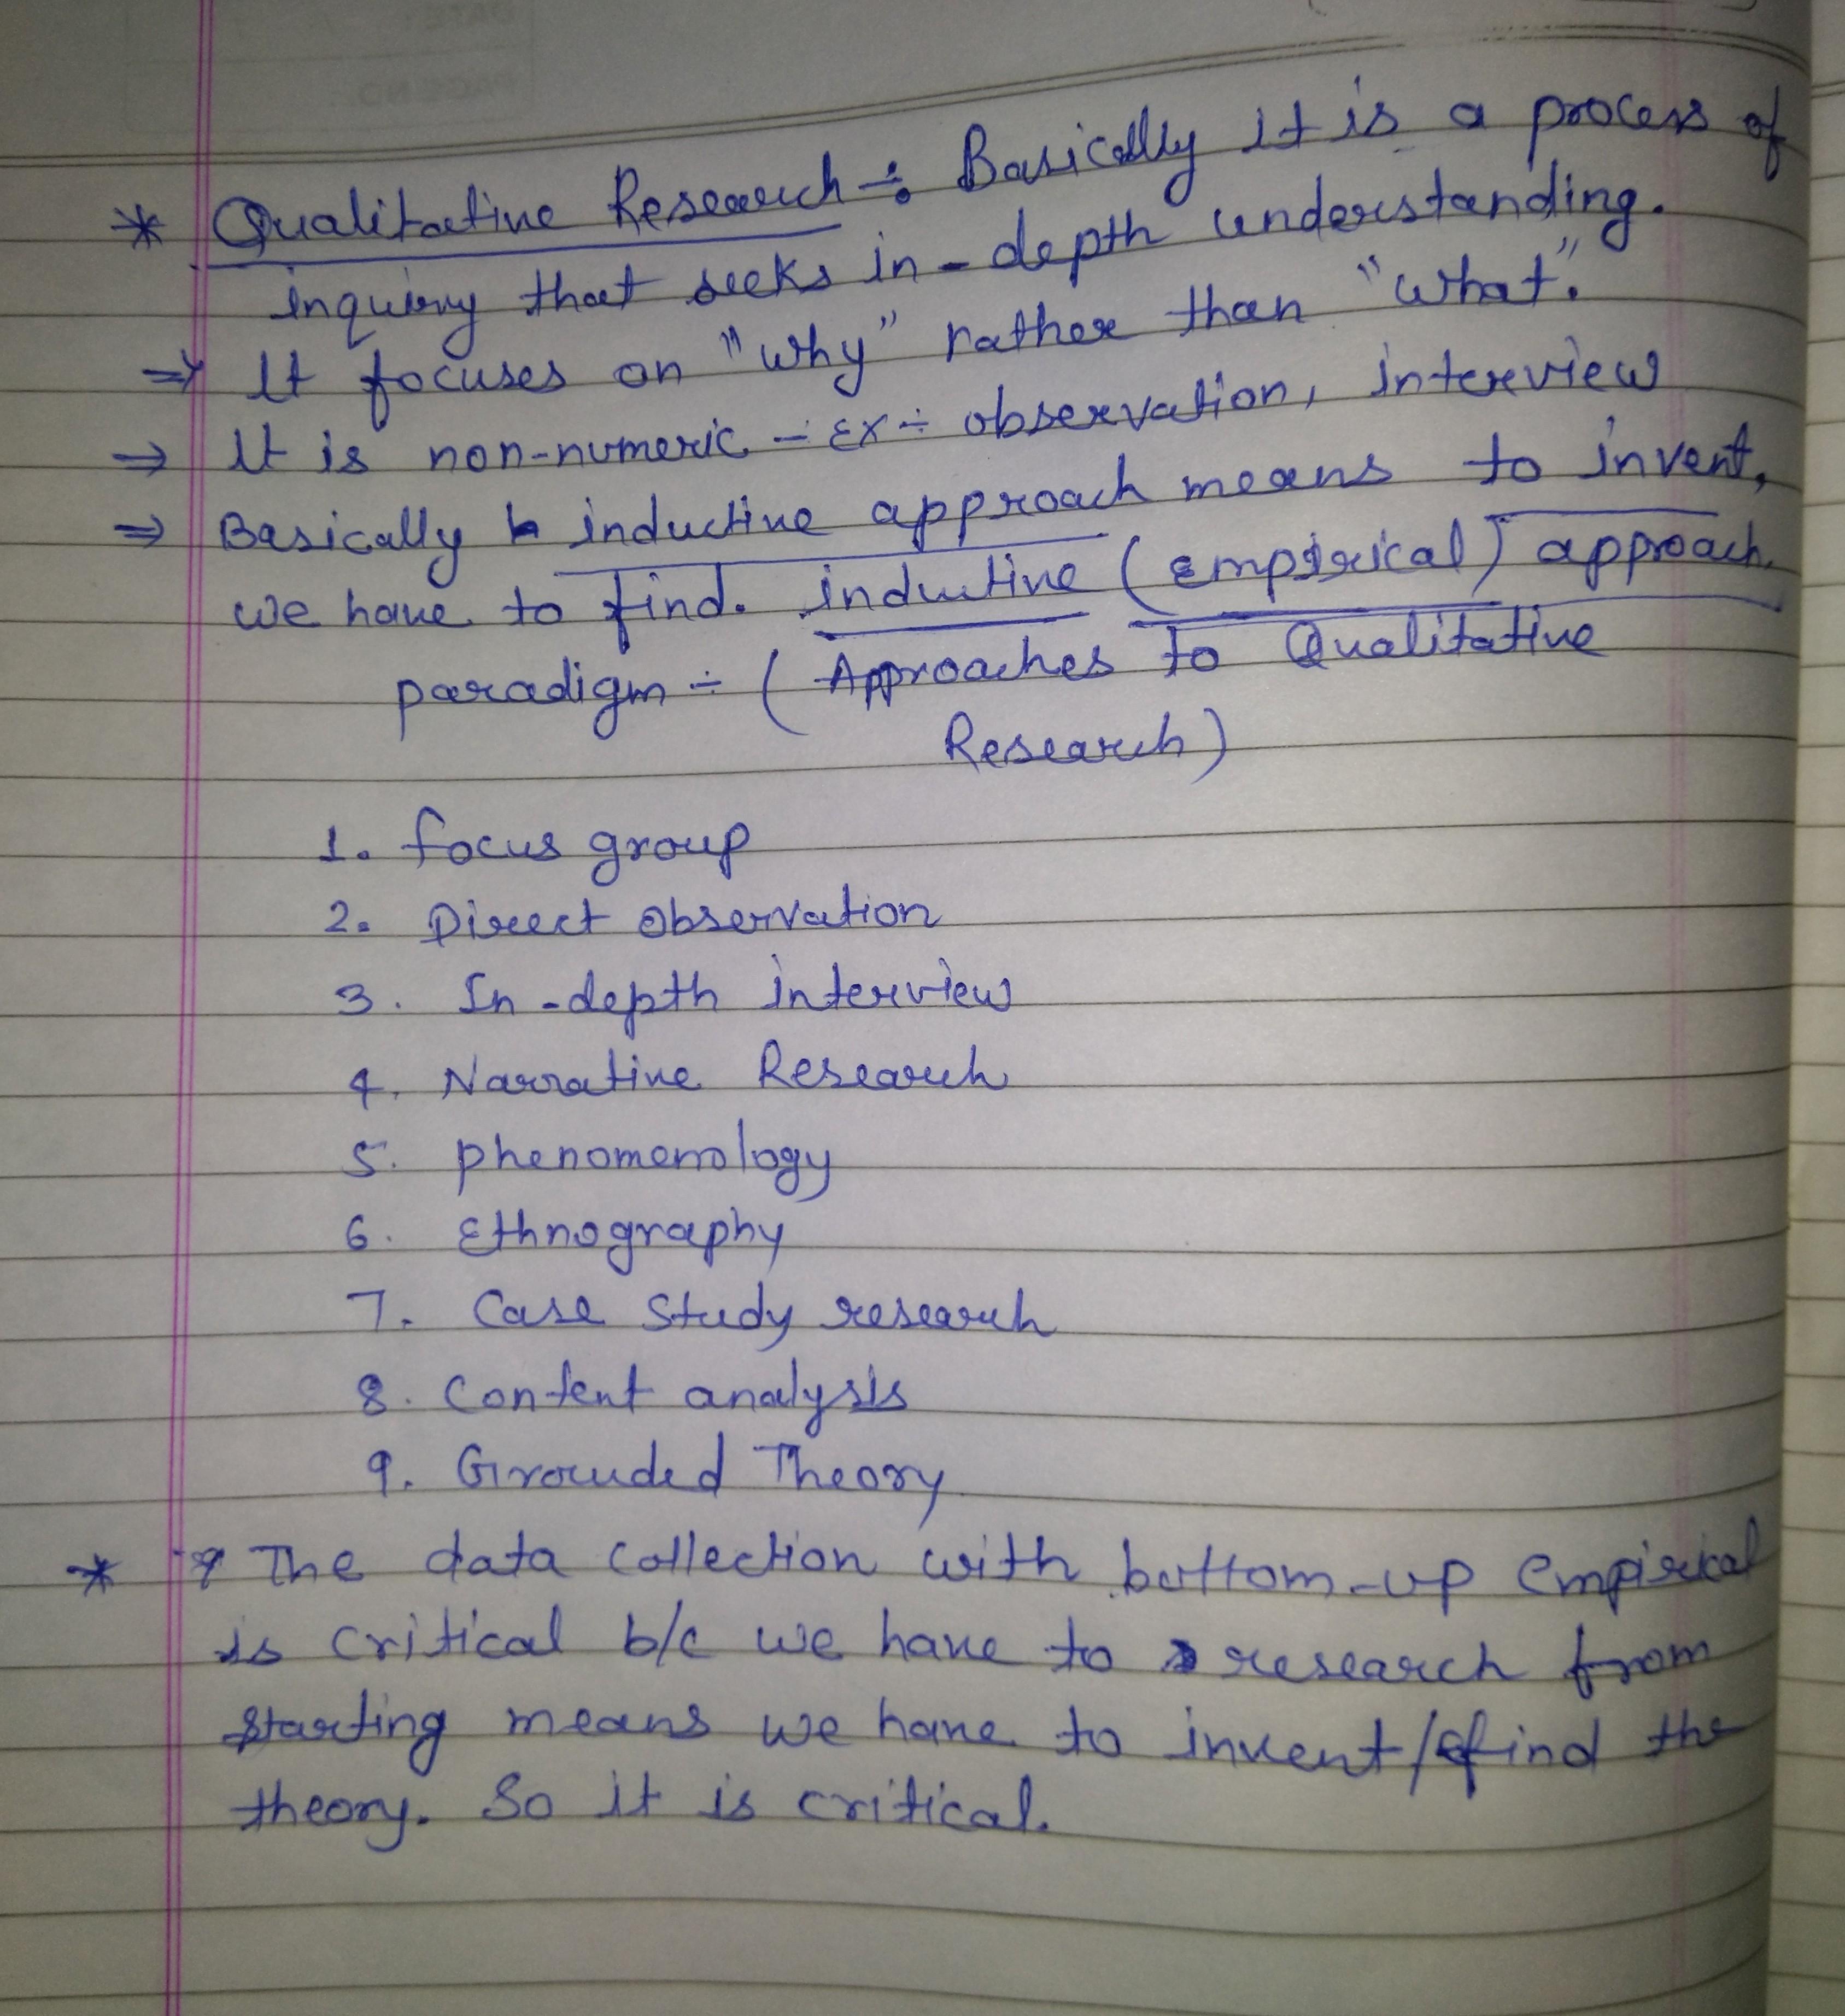 * Qualitative Research ÷ Basically it is a process of
inquiry that seeks in-depth understanding.
⇒ It focuses on "why" rather than "what".
⇒ It is non-numeric - Ex ÷ observation, interview
⇒ Basically inductive approach means to invent,
we have to find. inductive (Empirical) approach.
paradigm ÷ (Approaches to Qualitative
Research)
1. focus group
2. Direct observation
3. In-depth interview
4. Narrative Research
5. phenomenology
6. Ethnography
7. Case Study research
8. Content analysis
9. Grouded Theory
* The data collection with bottom-up empirical
is critical b/c we have to research from
starting means we have to invent/find the
theory. So it is critical.